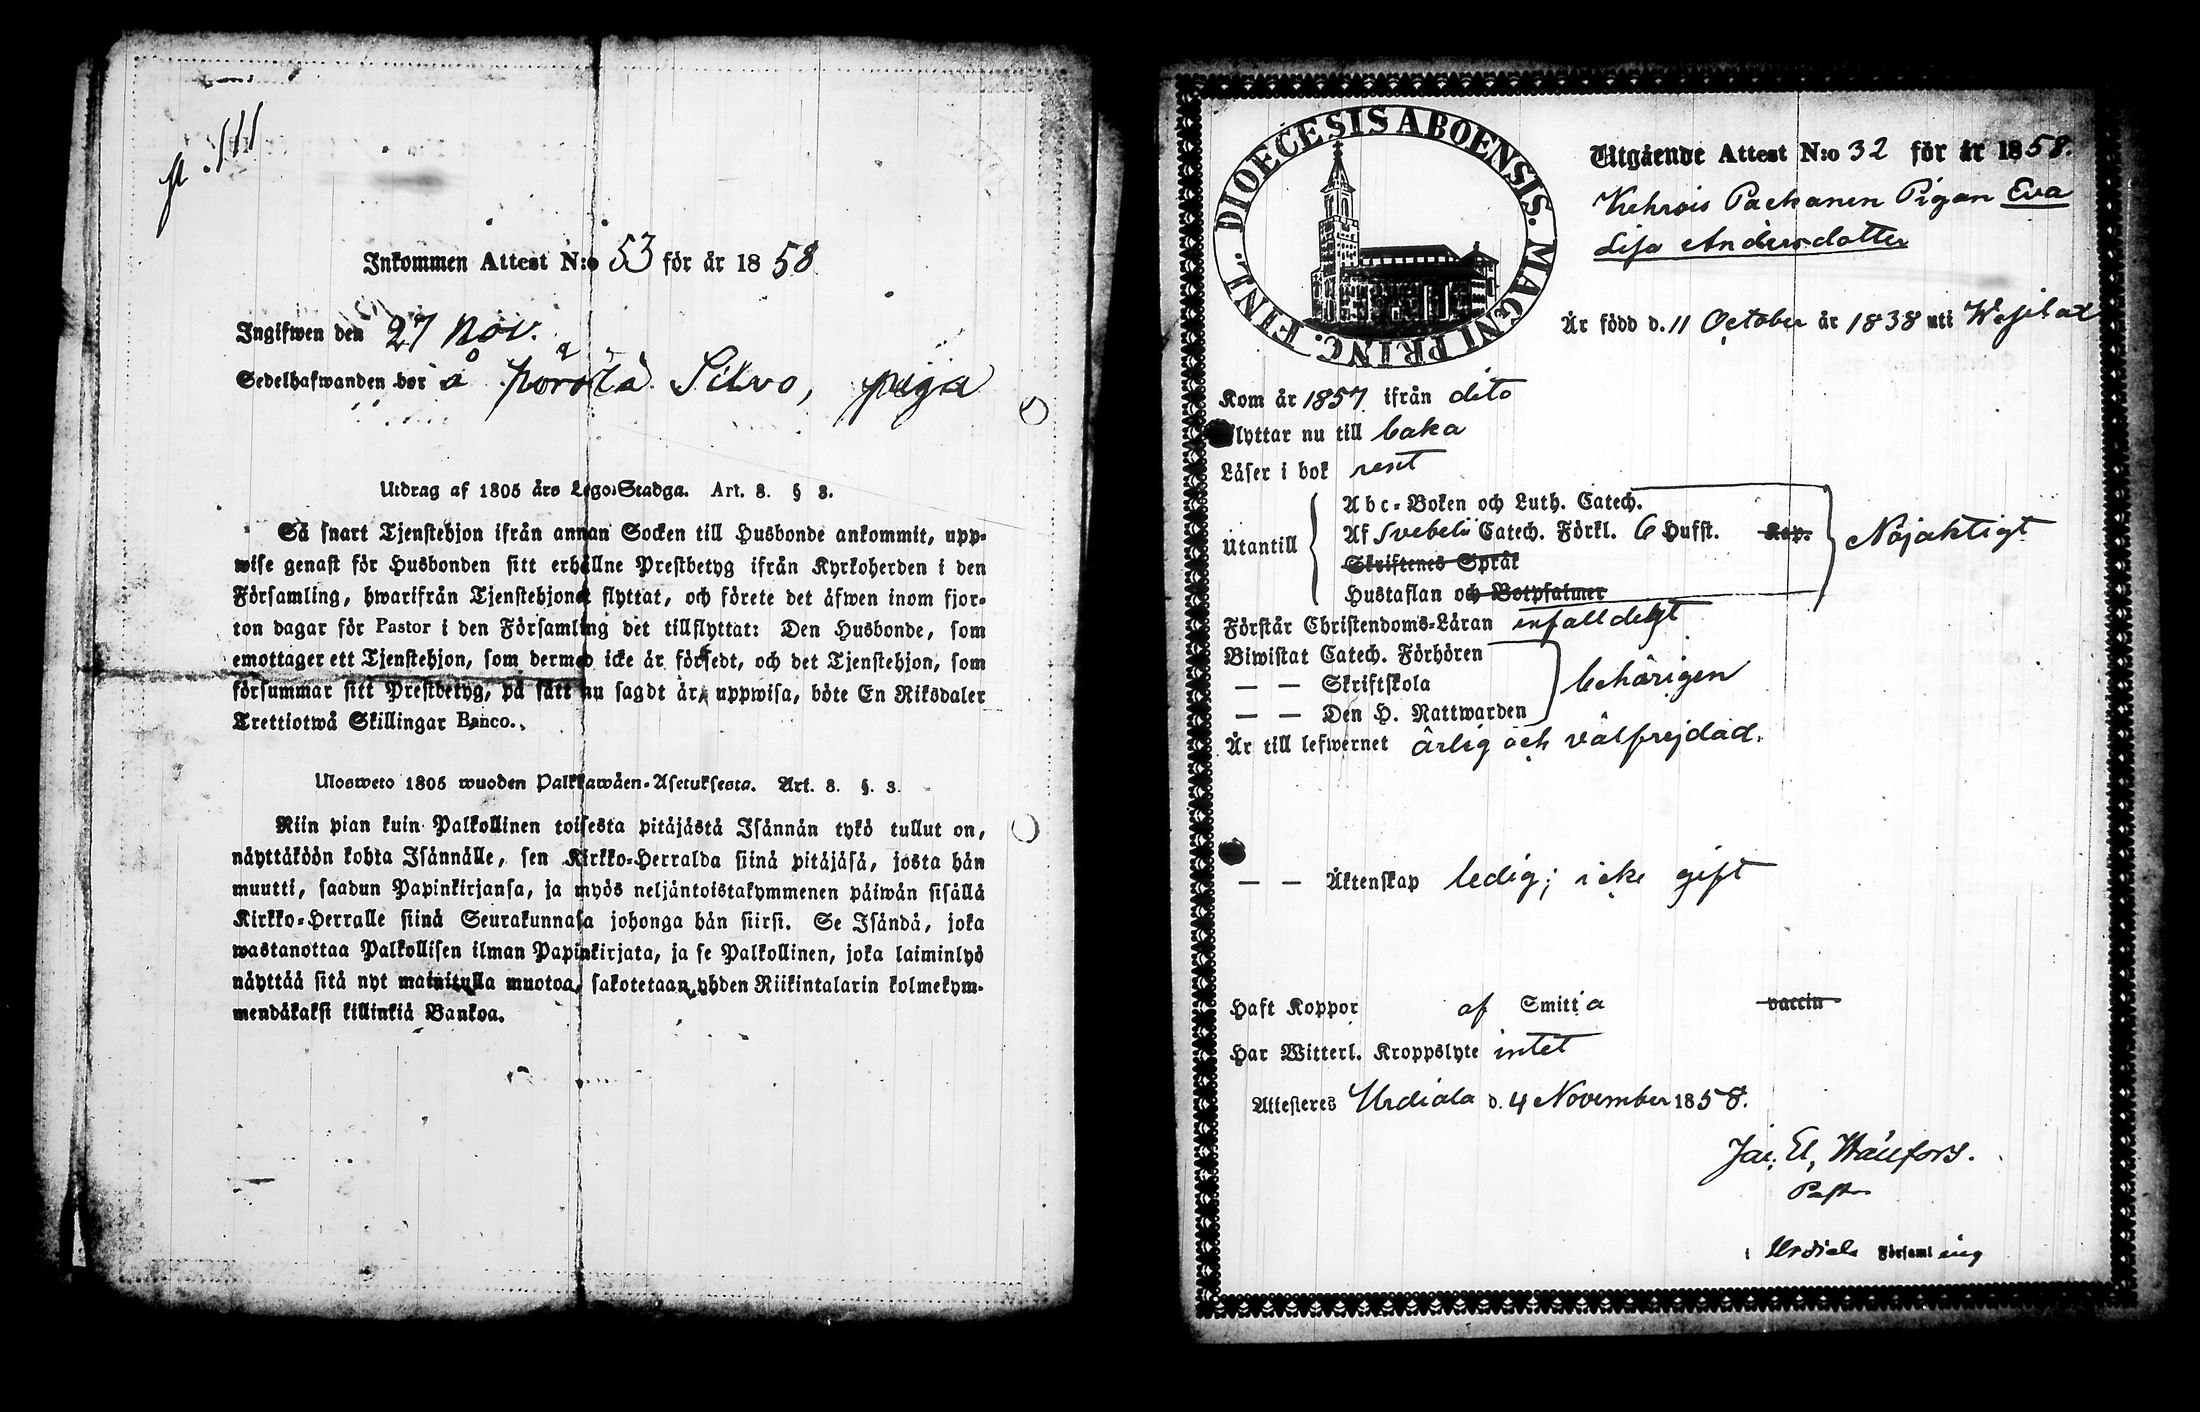 p. 111
Inkommen Attest N:o 53 för år 1858.
Ingifwen den 27 Nov.
Sedelhafwanden bor å Silvo, piga
Utdrag af 1805 års Lego-Stadga. Art. 8. § 3.
Så snart Tjenstehjon ifrån annan Socken till Husbonde ankommit, upp-
wise genast för Husbonden sitt erhållne Prestbetyg ifrån Kyrkoherden i den
Församling, hwarifrån Tjenstehjonet flyttat, och förete det äfwen inom fjor-
ton dagar för Pastor i den Församling det tillflyttat: Den Husbonde, som
emottager ett Tjenstehjon, som dermed icke är försedt, och det Tjenstehjon, som
försummar sitt Prestbetyg, på sätt nu sagdt är, uppwisa, böte En Riksdaler
Trettiotwå Skillingar Banco.
Ulosweto 1805 wuoden Palkkawäen-Asetuksesta. Art. 8. §. 3.
Niin pian kuin Palkollinen toisesta pitäjästä Isännän tykö tullut on,
näyttäköön kohta Isännälle, sen Kirkko-Herralda siinä pitäjäsä, josta hän
muutti, saadun Papinkirjansa, ja myös neljäntoistakymmenen päiwän sisällä
Kirkko-Herralle siinä Seurakunnasa johonga hän siirsi. Se Isändä, joka
wastanottaa Palkollisen ilman Papinkirjata, ja se Palkollinen, joka laiminlyö
näyttää sitä nyt mainitulla muotoa, sakotetaan yhden Riikintalarin kolmekym-
mendäkaksi killinkiä Bankoa.
DIOECESIS ABOENSIS. MAGNI PRINC. FINL.
Utgående Attest N:o 32 för år 1858.
Kehrois Packanen Pigan Eva
Lisa Andersdotter
Är född d. 11 October år 1838 uti Wesilax
Kom år 1857 ifrån dito
Flyttar nu till baka
Läser i bok rent
Abc-Boken och Luth. Catech.
Utantill Af Svebelii Catech. Förkl. 6 Hufst. Kap. Nöjaktigt
Skriftenes Språk
Hustaflan och Botpsalmer
Förstår Christendoms-Läran enfalldeligt
Biwistat Catech. Förhören
— — Skriftskola behörigen
— — Den H. Nattwarden
Är till lefwernet ärlig och välfrejdad.
— — Äktenskap ledig; icke gift
Haft Koppor af Smitta vaccin
Har Witterl. Kroppslyte intet
Attesteres Urdiala d. 4 November 1858.
Jac. El.
Pastor
i Urdiala Församling